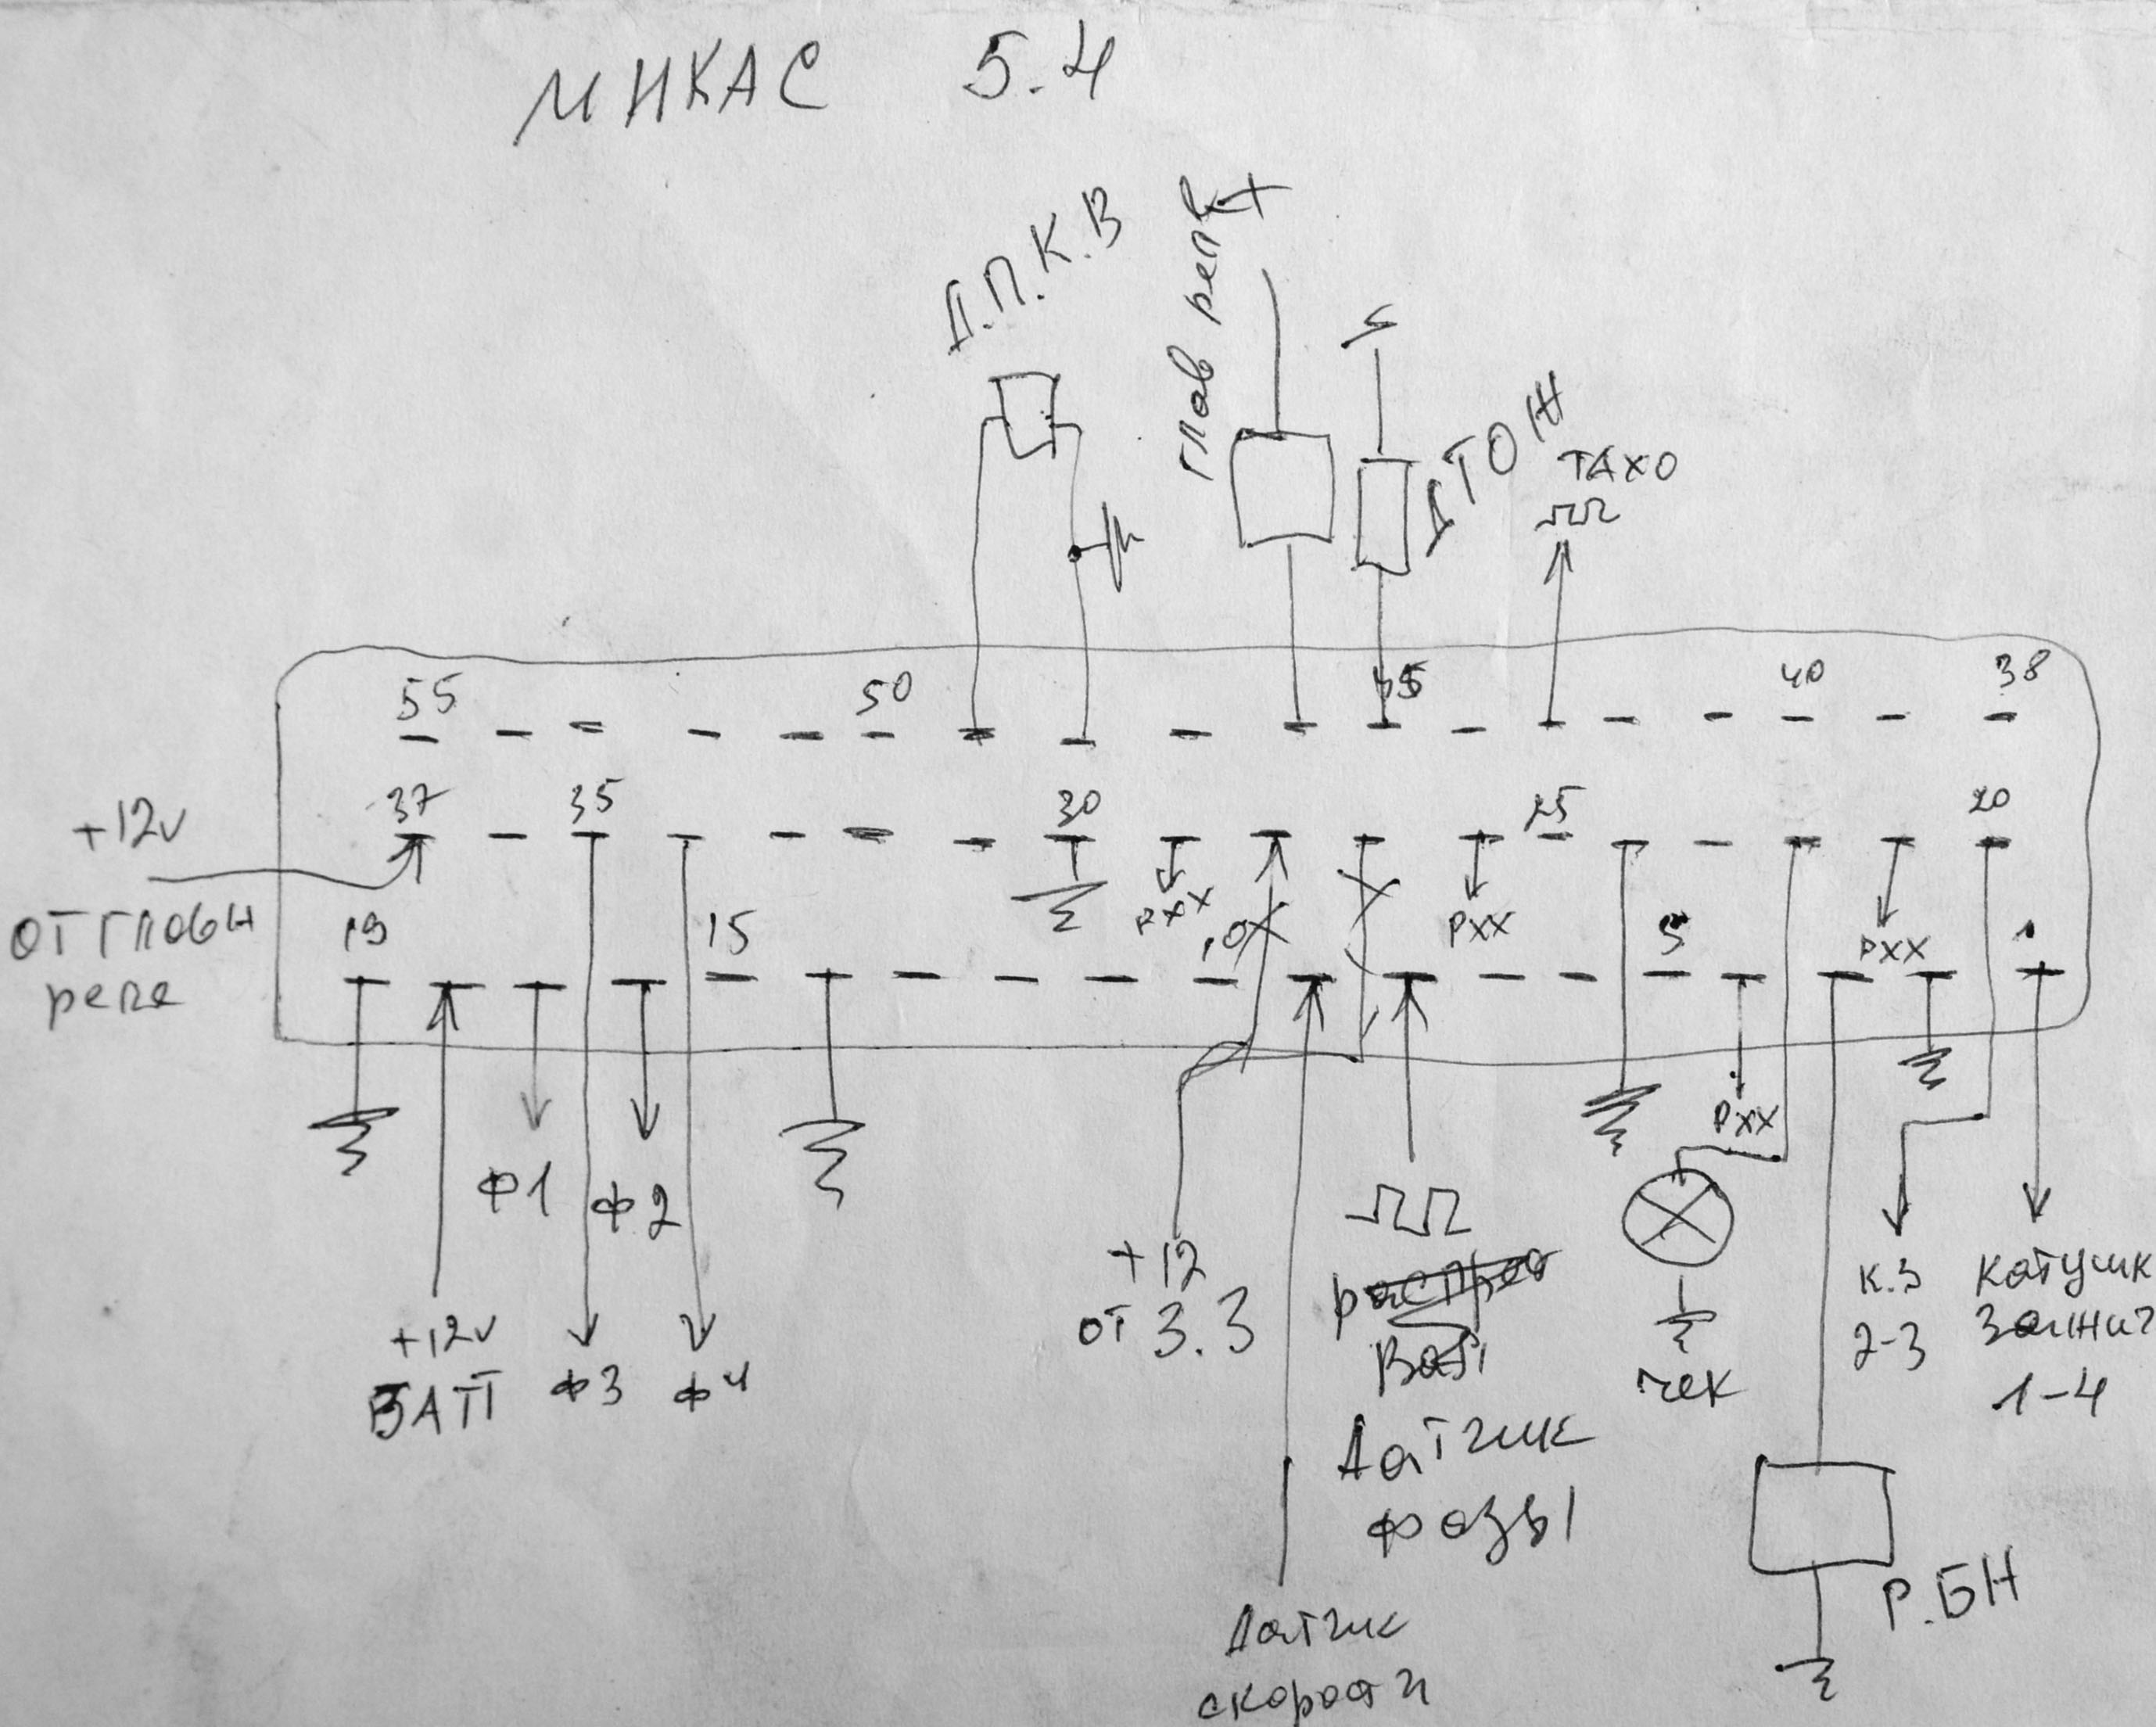 МИКАС 5.4
Д.П.К.В
глав реле +
ДТОЖ
ТАХО
55 50 45 40 38
37 35 30 25 20
+12v
ОТ ГЛАВН
реле
19 15 10 5 1
РХХ
РХХ
РХХ
РХХ
Ф1
Ф2
+12v
БАТТ
Ф3
Ф4
+12
от 3.3
Датчик
фазы
чек
К.З
2-3
Катушк
Зажиг
1-4
Р.БН
Датчик
скорости